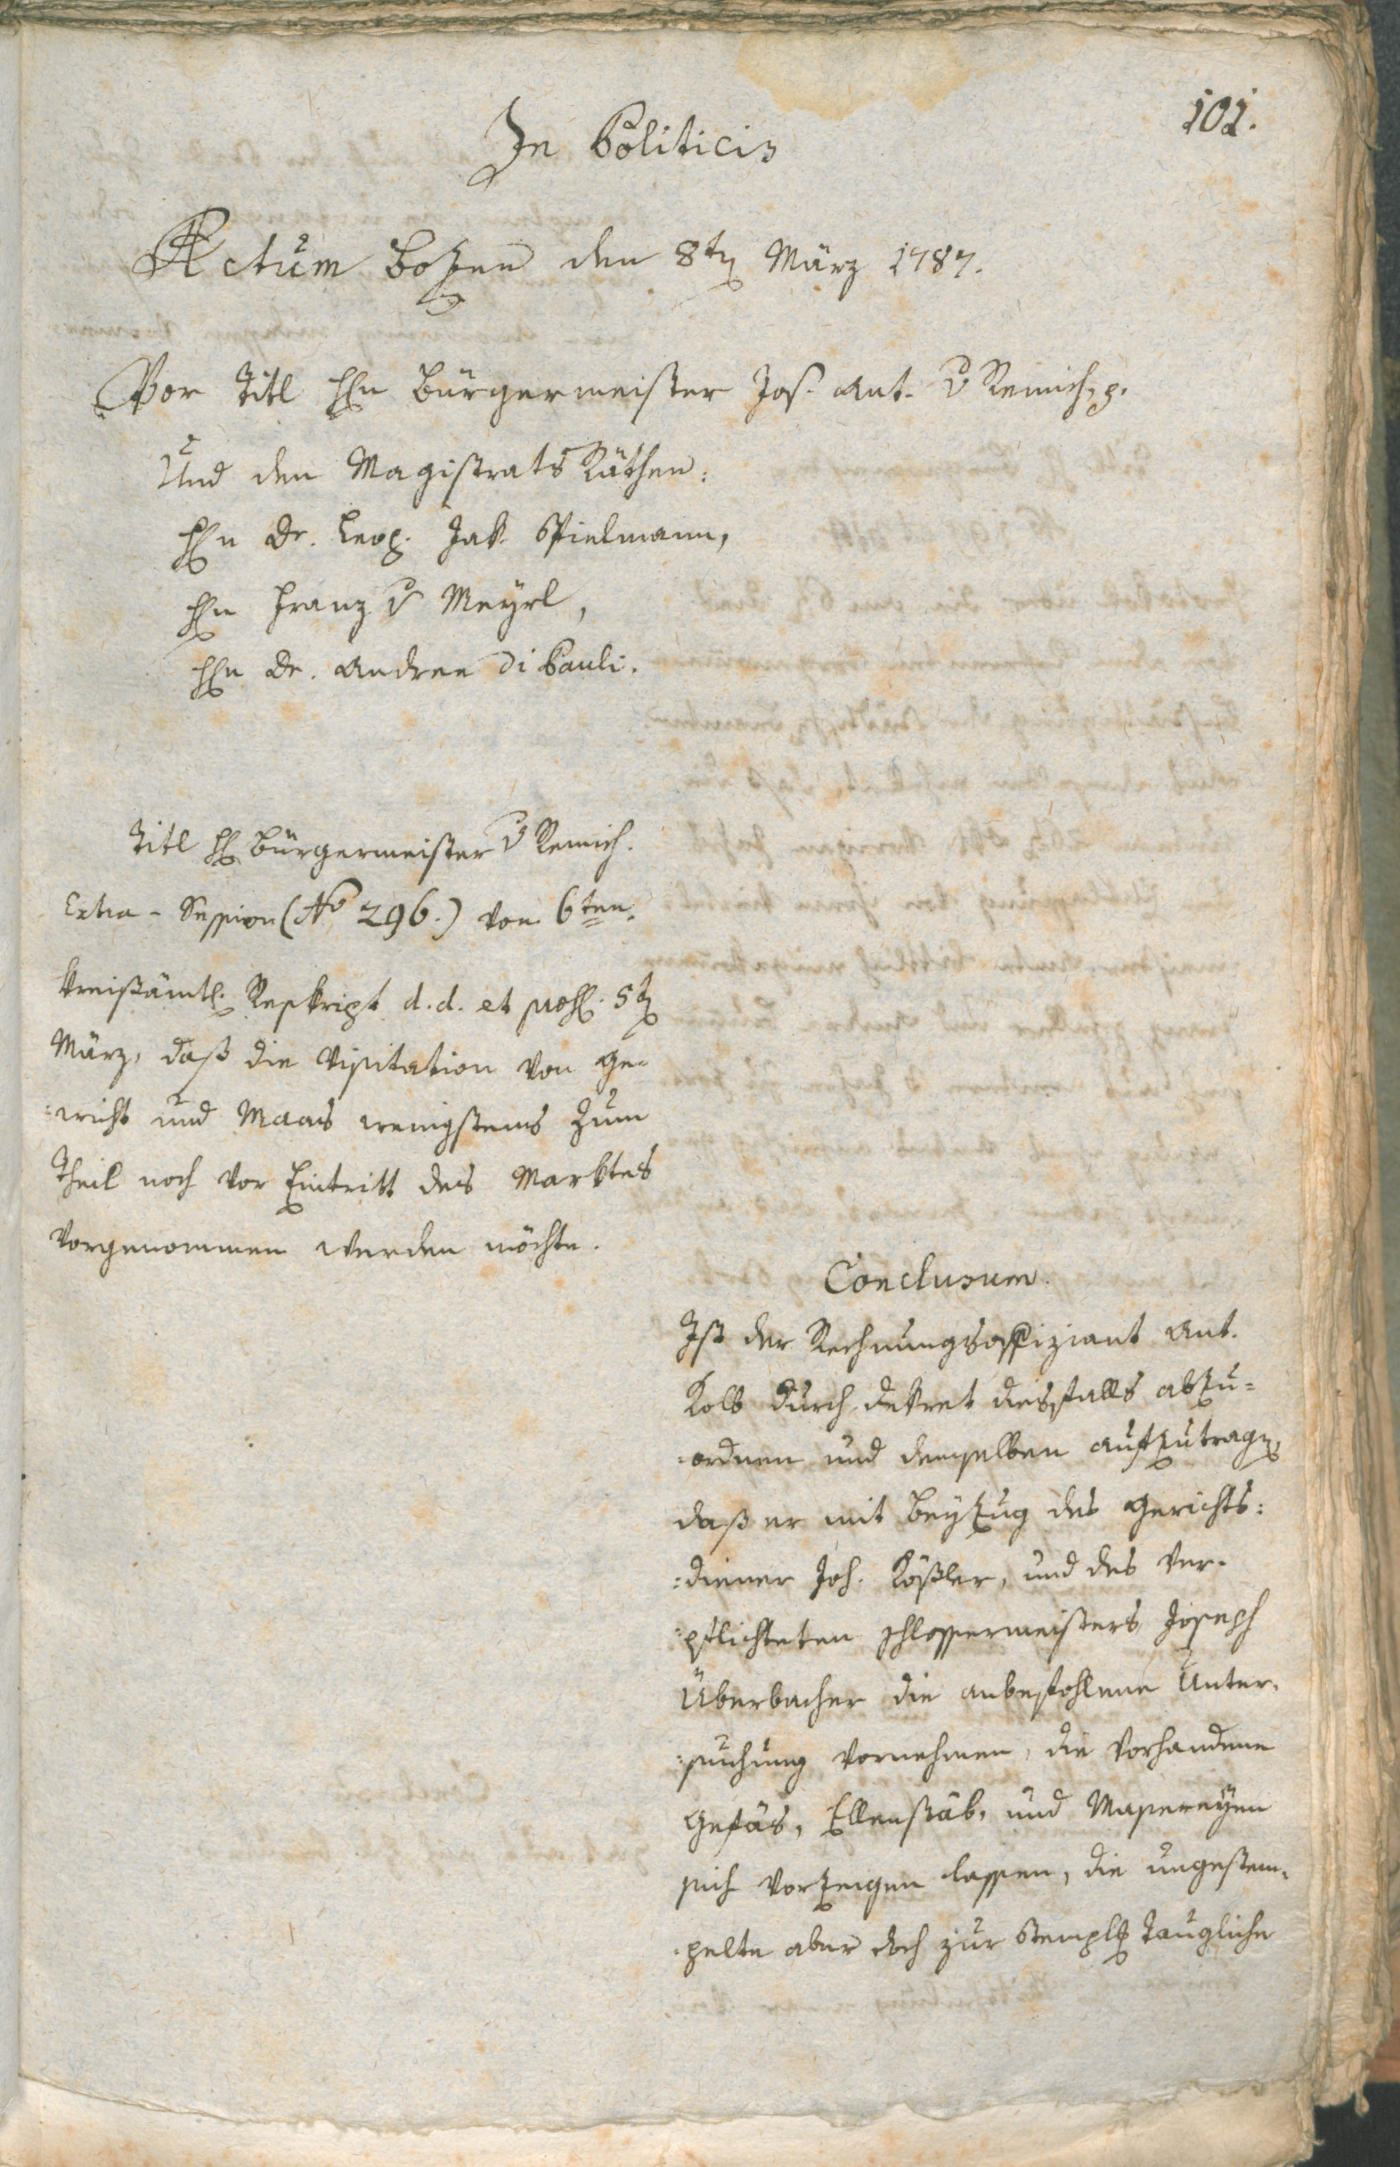 101.
In Politicis
Actum Bozen den 8t März 1787.
Vor Titl Hn Bürgermeister Jos. Ant. v Remich, p.
Und den Magistrats Räthen:
Hn Dr. Leop. Jak. Spielmann,
Hn Franz v Meyrl,
Hn Dr. Andree Di Pauli.
Titl H Bürgermeister v Remich.
Extra-Session (No 296.) von 6ten.
Kreißämtl. Reskript d. d. et 5t
März, daß die Visitation von Ge-
:wicht und Maas wenigstens zum
Theil noch vor Eintritt des Marktes
vorgenommen werden möchte.
Conclusum.
Ist der Rechnungsoffiziant Ant.
Kolb durch Dekret diesfalls abzu=
:ordnen und demselben aufzutragen,
daß er mit Beyzug des Gerichts:
:diener Joh. Kößler, und des ver-
:pflichteten Schlossermeisters Joseph
Überbacher die anbefohlene Unter-
:suchung vornehmen, die vorhandene
Gefäs, Ellenstäb, und Massereyen
sich vorzeigen lassen, die ungestem-
:pelte aber doch zur Stempl taugliche